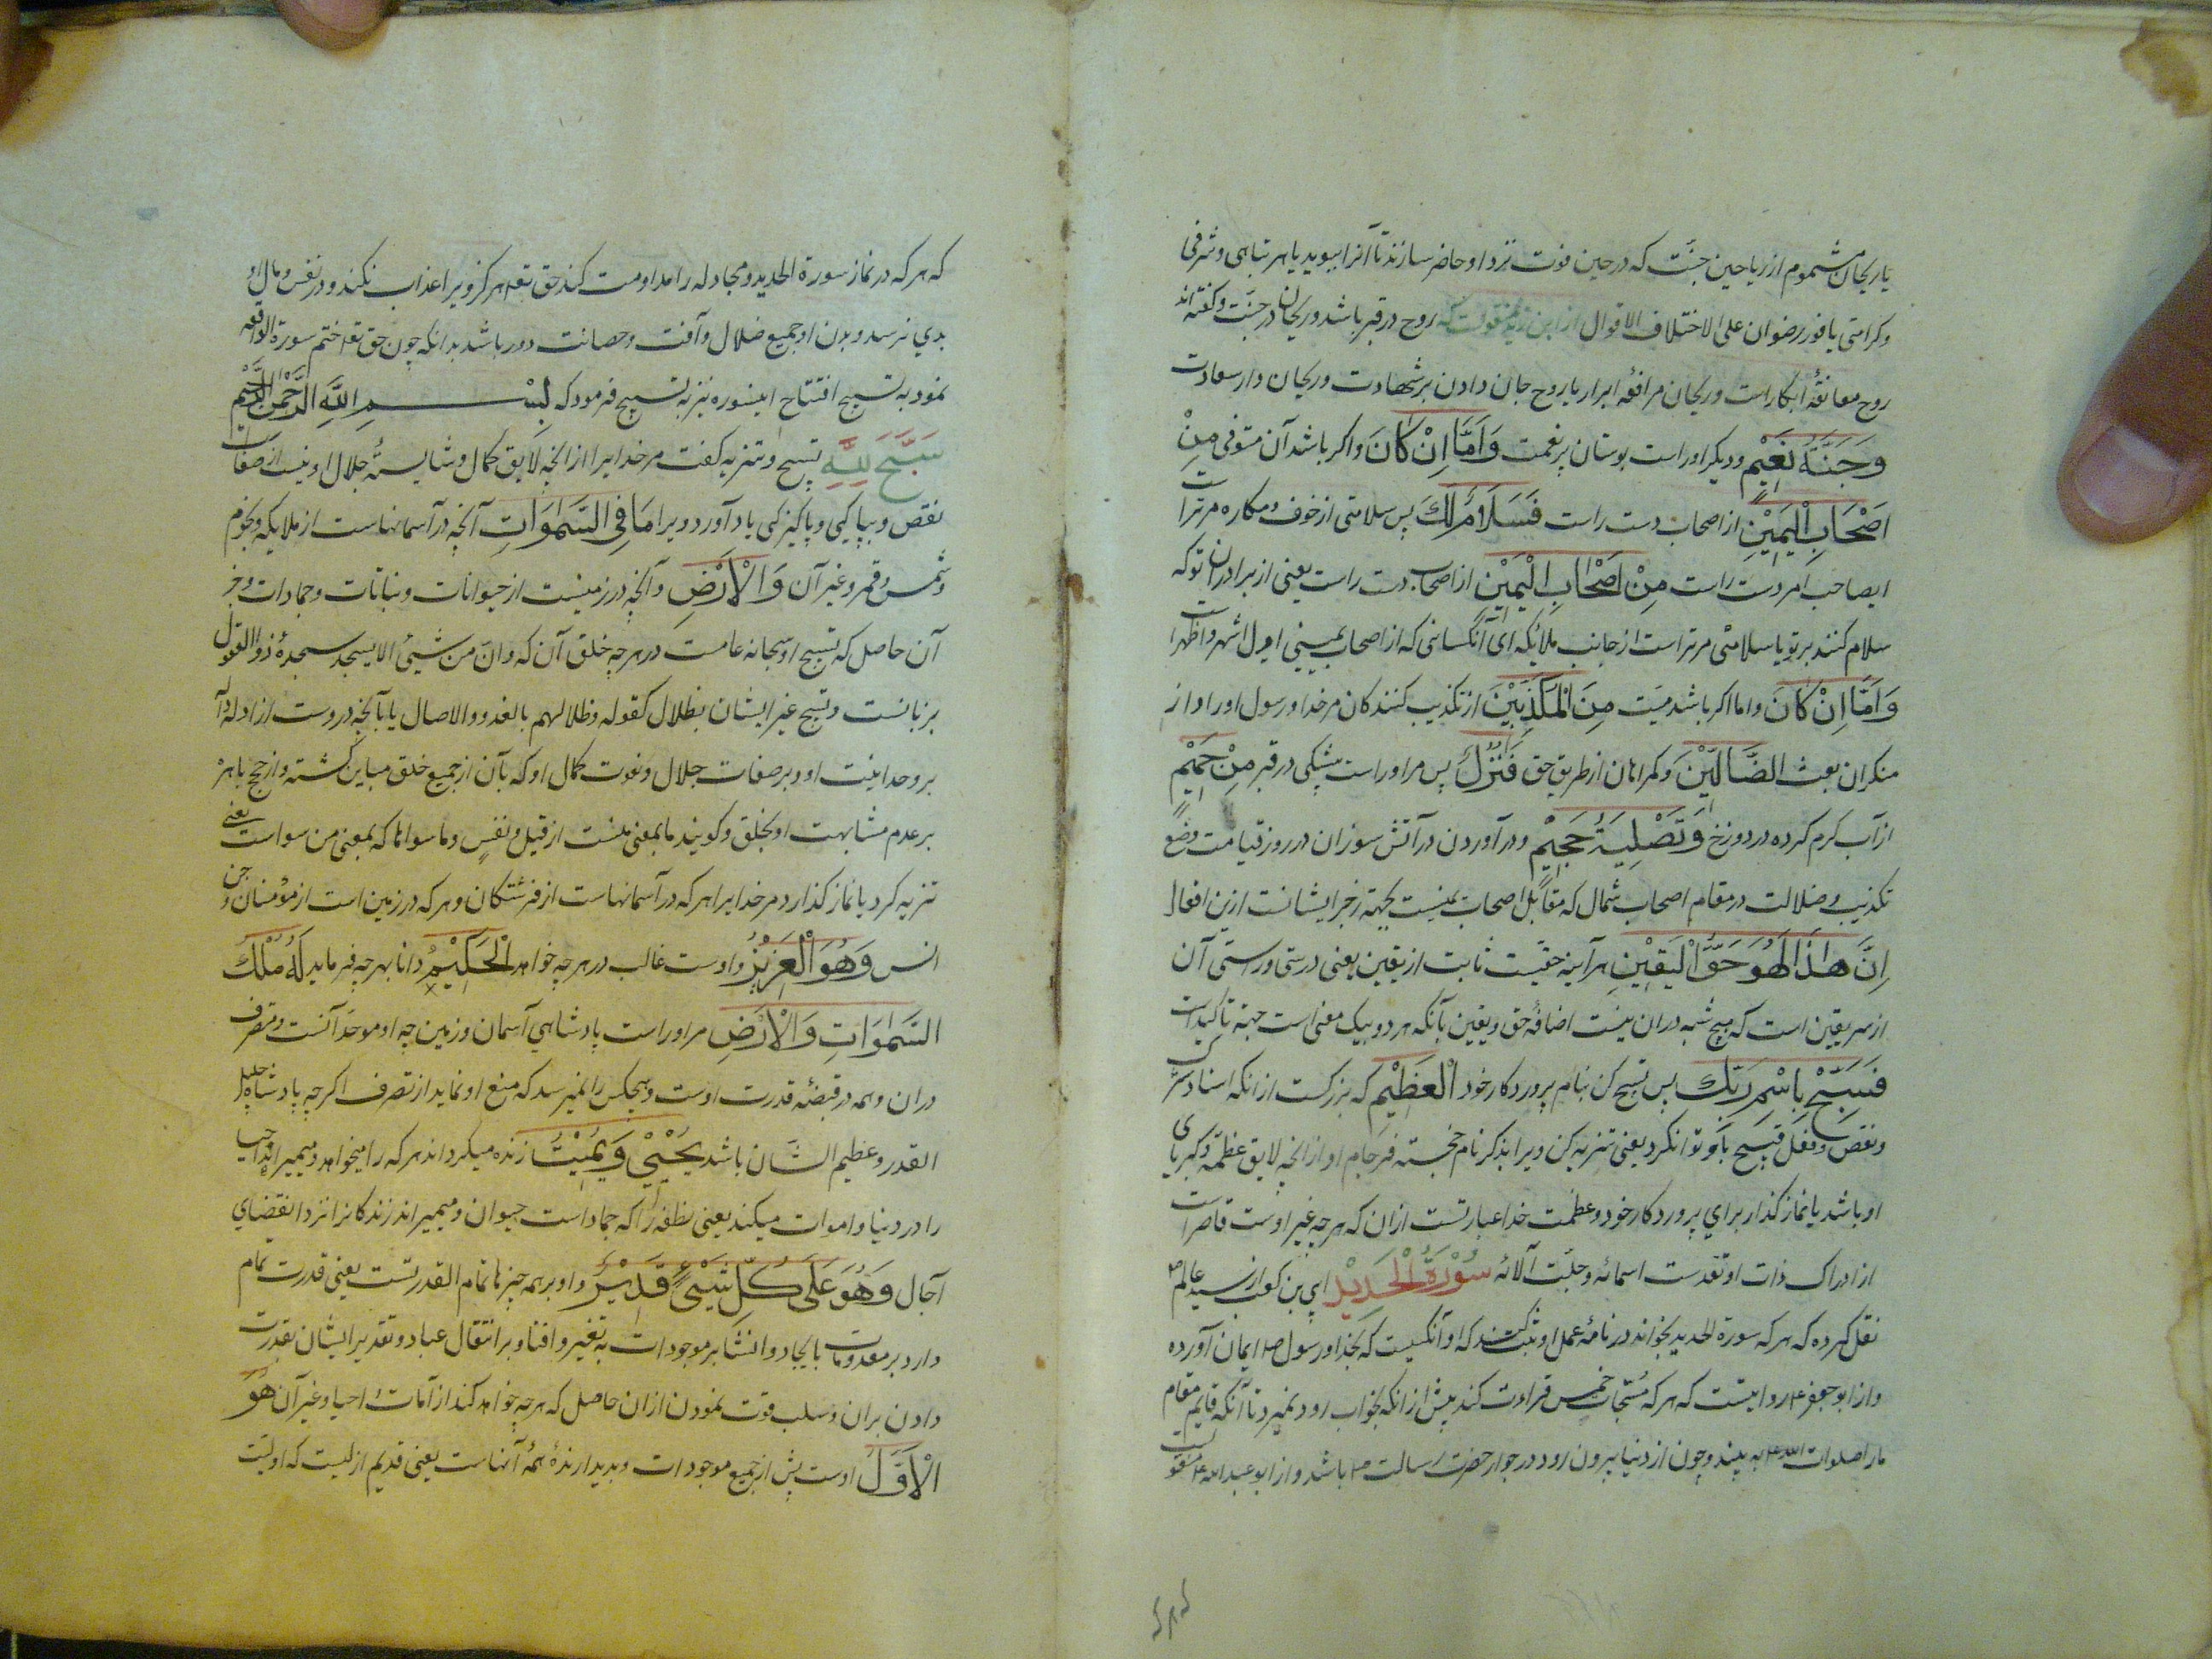 یا ریحان مشموم از ریاحین جنّت که در حین فوت نزد او حاضر سازند تا آنرا ببوید یا هر تباهی و شرفی
و کرامتی یا فوز رضوان علی الاختلاف الاقوال از ابن زید منقولست که روح در قبر باشد و ریحان در جنّت و گفته‌اند
روح معانقهٔ ابکار است و ریحان مرافقهٔ ابرار یا روح جان دادن بر شهادت و ریحان دار سعادت
وَجَنَّةُ نَعِيْمٍ و دیگر او راست بوستان پر نعمت وَاَمَّا اِنْ كَانَ و اگر باشد آن متوفی مِنْ
اَصْحَابِ الْيَمِيْنِ از اصحاب دست راست فَسَلَامٌ لَكَ پس سلامتی از خوف و مکاره مر تراست
ایصاحب امر دست راست مِنْ اَصْحَابِ الْيَمِيْنِ از اصحاب دست راست یعنی از برادران تو که
سلام کنند بر تو یا سلامتی مر تراست از جانب ملائکه ای آنکسانی که از اصحاب یمینی اول اشهر و اظهر است
وَاَمَّا اِنْ كَانَ و اما اگر باشد میّت مِنَ الْمُكَذِّبِيْنَ از تکذیب کنندگان مر خدا و رسول او را و از
منکران بعث الضَّالِّيْنَ و گمراهان از طریق حق فَنُزُلٌ پس مر او راست پیشکی در قبر مِنْ حَمِيْمٍ
از آب گرم کرده در دوزخ وَتَصْلِيَةُ جَحِيْمٍ و در آوردن در آتش سوزان در روز قیامت وضع
تکذیب و ضلالت در مقام اصحاب شمال که مقابل اصحاب یمینیست بجهة زجر ایشانست ازین افعال
اِنَّ هٰذَا لَهُوَ حَقُّ الْيَقِيْنِ هر آینه حقیست ثابت از یقین یعنی درستی و راستی آن
از سر یقین است که هیچ شبه در ان نیست اضافهٔ حق و یقین با آنکه هر دو بیک معنی است جهة تاکید است
فَسَبِّحْ بِاسْمِ رَبِّكَ پس تسبیح کن بنام پروردگار خود الْعَظِيْمِ که بزرگست از انکه اسناد شرک
و نقص و فعل قبیح باو توانکرد یعنی تنزیه کن ویرا بذکر نام خجسته فرجام او از انچه لایق عظمة و کبریای
او باشد یا نماز گذار برای پروردگار خود و عظمت خدا عبارتست از ان که هر چه غیر اوست قاصر است
از ادراک ذات او تقدست اسمائه و جلّت آلائه سُوْرَةُ الْحَدِيْدِ ابی بن کعب از سید عالم ص
نقل کرده که هر که سورة الحدید بخواند در نامهٔ عمل او ثبت کنند که او آنکسیست که بخدا و رسول ص ایمان آورده
و از ابو جعفر ع روایتست که هر که مسبّحات خمس قراءت کند پیش از انکه بخواب رود نمیرد تا آنکه قایم مقام
ما را صلوات الله ع به بیند و چون از دنیا بیرون رود در جوار حضرت رسالت ص باشد و از ابو عبدالله ع منقولست
که هر که در نماز سورة الحدید و مجادله را مداومت کند حق تعا هرگز ویرا عذاب نکند و در نفس و مال او
بدی نرسد و بدن او جمیع ضلال و آفت و حصانت دور باشد بدانکه چون حق تعا ختم سورة الواقعه
نمود به تسبیح افتتاح اینسوره نیز به تسبیح فرمود که بِسْمِ اللَّهِ الرَّحْمٰنِ الرَّحِيْمِ
سَبَّحَ لِلَّهِ تسبیح و تنزیه گفت مر خدایرا از انچه لایق کمال و شایستهٔ جلال او نیست از صفات
نقص و بپاکی و پاکیزگی یاد آورد ویرا مَا فِي السَّمٰوَاتِ آنچه در آسمانهاست از ملایکه و نجوم
و شمس و قمر و غیر آن وَالْاَرْضِ و آنچه در زمینست از حیوانات و نباتات و جمادات و جز
آن حاصل که تسبیح او سبحانه عامست در هر چه خلق آن که و ان من شیئ الا یسجد سجدهٔ ذوالعقول
بزبانست و تسبیح غیر ایشان بظلال کقوله و ظلالهم بالغدو والاصال یا بآنچه دروست از ادله داله
بر وحدانیت او و بر صفات جلال و نعوت کمال او که بآن از جمیع خلق مباین گشته و از حجج باهره
بر عدم مشابهت او بخلق و گویند ما بمعنی منست از قبیل و نفس و ما سواها که بمعنی من سواست یعنی
تنزیه کرد یا نماز گذارد مر خدایرا هر که در آسمانهاست از فرشتگان و هر که در زمین است از مؤمنان جن و
انس وَهُوَ الْعَزِيْزُ و اوست غالب در هر چه خواهد الْحَكِيْمُ دانا بهر چه فرماید لَهُ مُلْكُ
السَّمٰوَاتِ وَالْاَرْضِ مر او راست پادشاهی آسمان و زمین چه او موجد آنست و متصرف
در ان و همه در قبضهٔ قدرت اوست و هیچکس را نمیرسد که منع او نماید از تصرف اگر چه پادشاه جلیل
القدر و عظیم الشان باشد يُحْيِيْ وَيُمِيْتُ زنده میگرداند هر که را میخواهد و میمیراند احیا
را در دنیا و اموات میکند یعنی نطفه را که جماد است حیوان و میمیراند زندگانرا نزد انقضای
آجال وَهُوَ عَلٰى كُلِّ شَيْئٍ قَدِيْرٌ و او بر همه چیزها تمام القدرتست یعنی قدرت تمام
دارد بر معدومات بایجاد و انشا بر موجودات به تغییر و افنا و بر انتقال عباد و تقدیر ایشان بقدرت
دادن بران و سلب قوت نمودن ازان حاصل که هر چه خواهد کند از آمات و احیا و غیر آن هُوَ
الْاَوَّلُ اوست پیش از جمیع موجودات و پدیدارندهٔ همهٔ آنهاست یعنی قدیم ازلیست که اولیّت